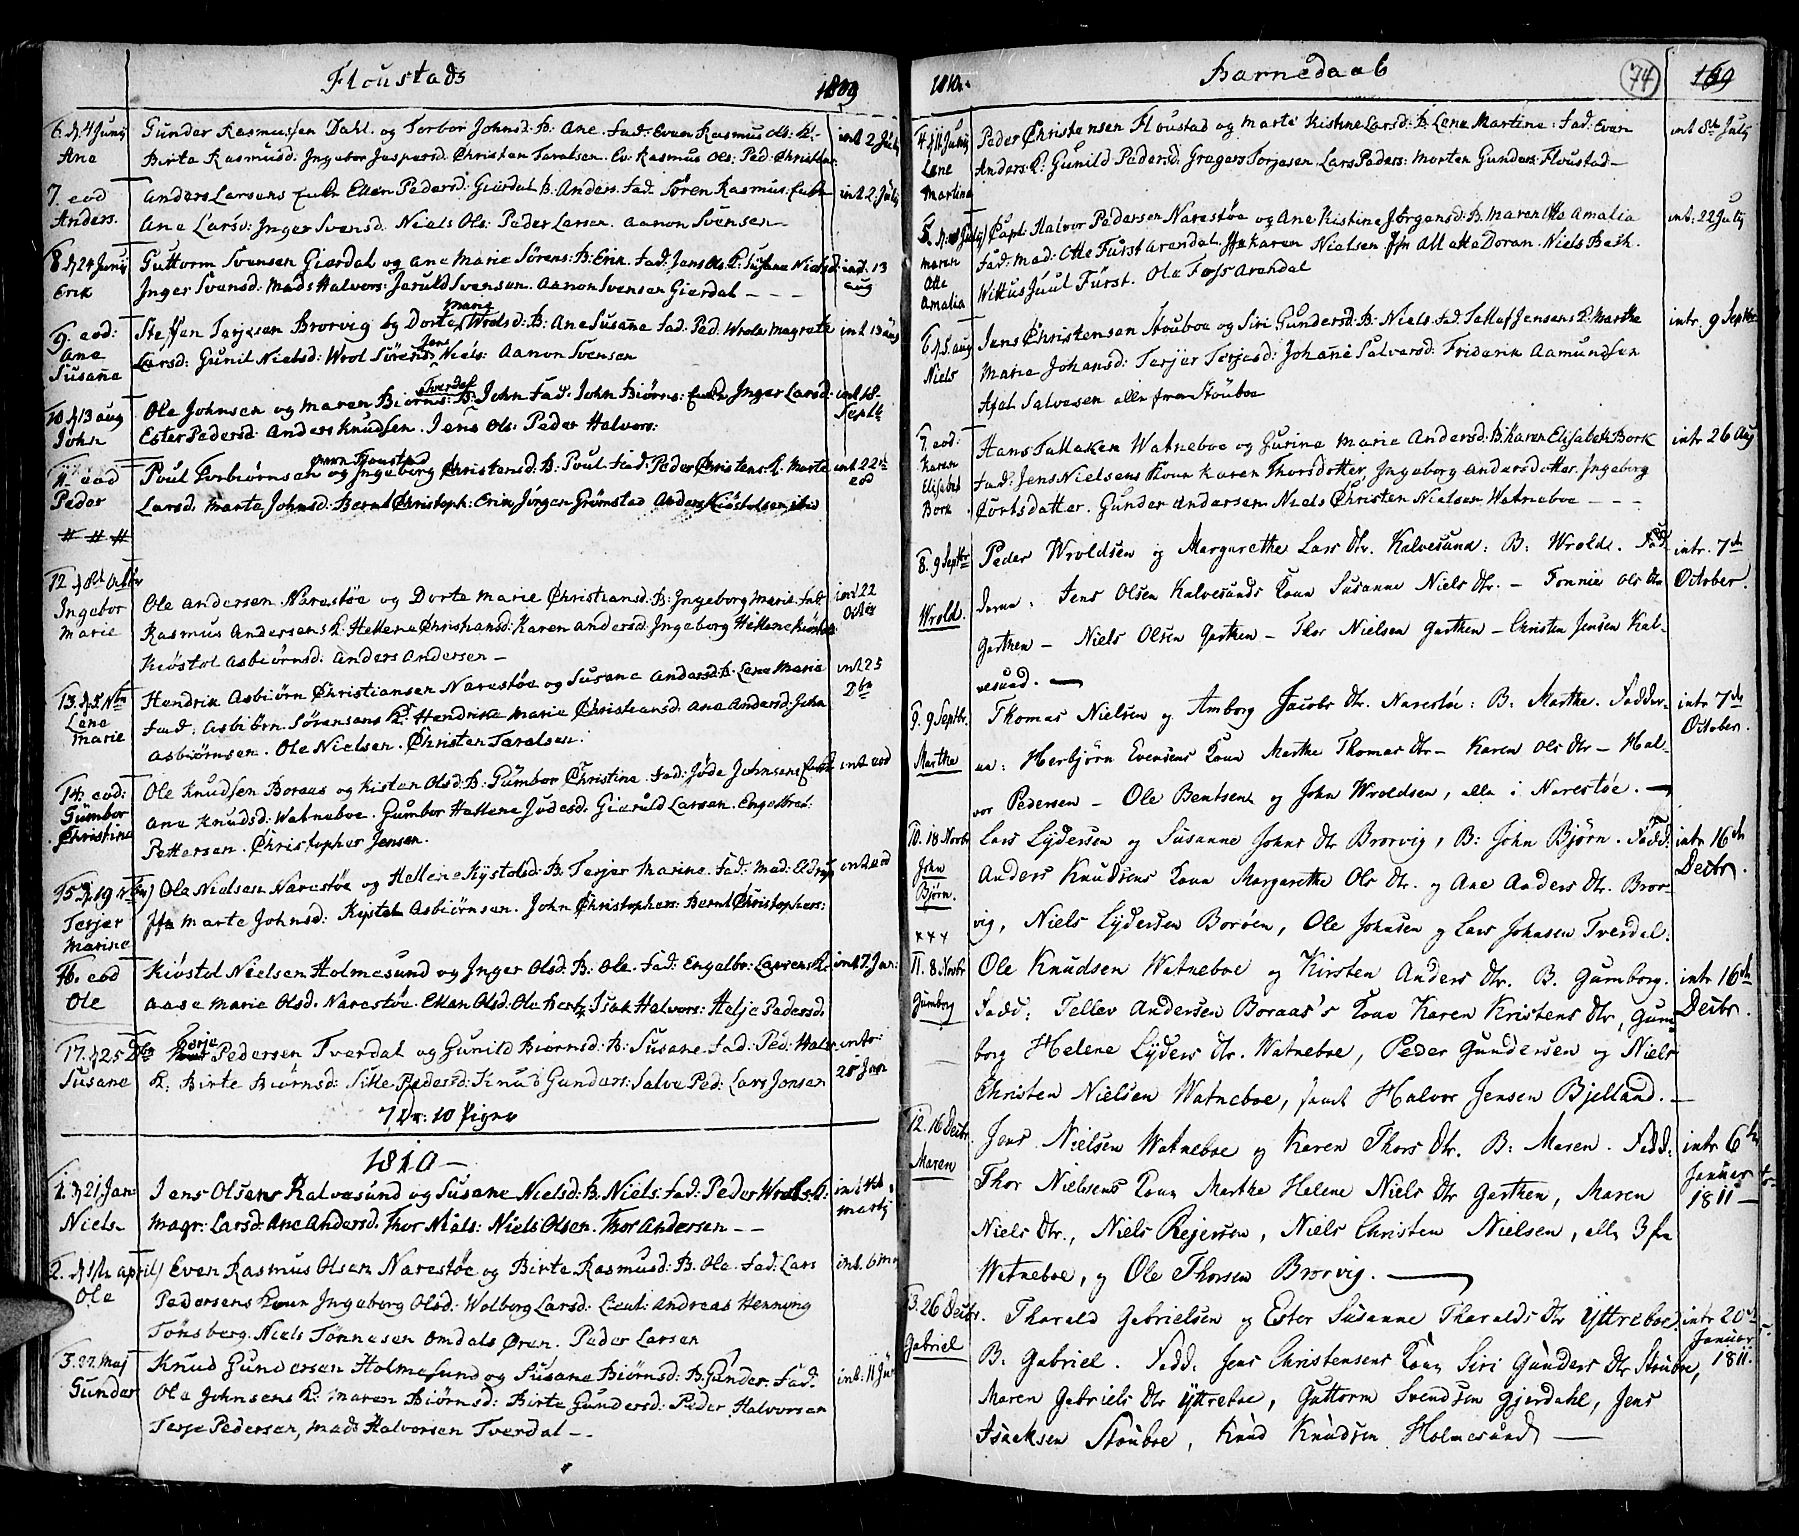 Floustads
1809
6. d 4 Junÿ
Ane
Gunder Rasmussen Dahl. og Torbor Johnsd: B: Ane. Fad: Even Rasmus Ols: K:
Birte Rasmusd: Ingebor Jespersd: Christen Taralsen. Ev. Rasmus Ols: Ped: Christen
int 2 Julÿ
7. eod
Anders.
Anders Larsens Enke Ellen Pedersd: Gierdal B: Anders. Fad: Søren Rasmus: Enke
Ane Larsd: Inger Svensd. Niels Ols: Peder Larsen. Aanon Svensen
int 2 Julÿ
8. d 24 Junÿ
Erik
Guttorm Svensen Gierdal og Ane Marie Sørens: B: Erik. Fad: Jens Ols. K: Susane Nielsd
Inger Svensd: Mads Halvors: Jeruld Svensen. Aanon Svensen Gierdal
int. 13
aug
9. eod:
Ane
Susane
Marig
Steffen Tarjesen Brorvig og Dorte Wrolsd: B: Ane Susane Fad: Ped. Wrols Magrete
Larsd: Gunil Nielsd: Wrol Sørens: Jens Niels: Aanon Svensen
int 13 aug
10. d 13 aug
John
Tverdal
Ole Johnsen og Maren Biørns: B: John Fad: John Biørns: Enke Inger Larsd.
Ester Pedersd: Anders Knudsen. Jens Ols: Peder Halvors:
int 18
Septb
11. eod
Peder
Poul Torbiørnsen og Ingeborg Christensd: B: Poul Fad: Peder Christens K. Marte
Larsd. Marte Johnsd: Bernt Christoph: Erik Jörgen Grömstad Anders Kiöstolsen
int 22
eod
# # #
12. d 8 Octbr
Ingebor
Marie
Ole Andersen Narestøe og Dorte Marie Christiansd: B: Ingeborg Marie. Fad:
Rasmus Andersens K: Hellene Christiansd: Karen Andersd: Ingeborg Hellene Kiöstols
Kiöstol Asbiörnsd: Anders Andersen
int 22
Octbr
13. d 5 Nbr
Lene
Marie
Hendrik Asbiörn Christiansen Narestøe og Susane Andersd: B: Lene Marie
Fad: Asbiörn Sørensens K: Hendrike Marie Christiansd: Ane Andersd: John
Asbiørnsen. Ole Nielsen. Christen Taralsen:
int 25
14. eod:
Gumbor
Christine
Ole Knudsen Boraas og Kisten Olsd: B: Gumbor Christine. Fad: Jøde Johnsens Enke
Ane Knudsd: Watneboe. Gumbor Hellene Judesd: Gieruld Larsen. Engelbret
Pettersen. Christopher Jensen.
int eod
15. d 19
Terjer
Marine
Ole Nielsen Narestøe og Hellene Kystolsd: B: Terjer Marine. Fad: Mad: Eldrup
Marte Johnsd: Kystel Asbiörnsen. John Christophers: Bernt Christophers:
int eod
16. eod
Ole
Kiöstol Nielsen Holmesund og Inger Olsd: B: Ole. Fad: Engelbr: Larsens K:
Aase Marie Olsd. Narestøe. Ellen Olsd: Ole Isak Halvors: Helje Pedersd.
int 7 Jan:
17. d 25
Susane
Terje
Pedersen Tverdal og Gunild Biörnsd: B: Susane. Fad: Ped: Halv
K. Birte Biørnsd: Sille Pedersd: Knud Gunders: Salve Ped: Lars Jonsen
intr:
28 Jan
7 Dr: 10 Pigr
1810
1. d 21 Jan
Niels
Jens Olsens Kalvesund og Susane Nielsd: B: Niels: Fad: Peder Wrols K.
Magr: Larsd: Ane Andersd. Thor Niels: Niels Olsen. Thor Andersen
int 4de
Martj
2. d 1ste april
Ole
Even Rasmus Olsen Narestøe og Birte Rasmusd: B: Ole. Fad: Lars
Pedersens Koun Ingeborg Olsd: Wolborg Larsd: Lieut: Andreas Henning
Tönsberg. Niels Tönnesen Omdals Øren. Peder Larsen
int. 6 Maj
3. 27. Maj
Gunder
Knud Gundersen Holmesund og Susane Biørnsd: B: Gunder. Fad:
Ole Johnsens K: Maren Biørnsd: Birte Gundersd: Peder Halvorsen
Terje Pedersen, Mads Halvorsen Tverdal
int. 11 Jun
1810.
Barnedaab
74
169
4. d 11 Junÿ
Lene
Martine
Peder Christensen Floustad og Marte Kistine Larsd: B. Lene Martine: Fad: Even
Anders: K: Gunild Pedersd: Gregers Torjesen Lars Peders: Morten Gunders: Floustad
int 8de Julÿ
5. d Julÿ
Maren
Otte
Amalia
Capt: Halvor Pedersen Narestøe og Ane Kistine Jörgensd: B. Maren Otte Amalia
Fad: Mad: Otte Fürst Arendal, Karen Nielsen Doran. Niels Bach.
Wittus Juul Fürst. Ole Foss Arendal
int. 22 Julÿ
6. d 5. aug
Niels
Jens Christensen Stouboe og Siri Gundersd: B: Niels. Fad: Tallef Jensens K: Marthe
Marie Johansd: Terjer Terjesd: Johane Salversd: Friderik Aamundsen
Axel Salvesen alle fra Stouboe
intr. 9 Septbr
7. eod:
Karen
Elisabet
Bork
Hans Tallaksen Watneboe og Gurine Marie Andersd: B. Karen Elisabeth Bork
Fad: Jens Nielsens Koun Karen Thorsdotter, Ingeborg Andersdotter. Ingeborg
Cortsdatter. Gunder Andersen. Niels Christen Nielsen Watneboe
intr. 26 Aug
8. 9 Septbr
Wrold.
Peder Wroldsen og Margarethe Lars Dtr. Kalvesund: B: Wrold. Fad
derne: Jens Olsen Kalvesunds Kone Susanne Niels Dtr. – Tonnie Ols Dtr
Garthen – Niels Olsen Garthen – Thor Nielsen Garthen – Christen Jensen Kal-
vesund.
intr. 7de
October.
9. 9 Septbr.
Marthe
Thomas Nielsen og Amborg Jacobs Dtr. Narestöe: B: Marthe. Fadder-
ne: Herbjörn Evensens Kone Marthe Thomas Dtr – Karen Ols Dtr – Hal-
vor Pedersen – Ole Bentsen og John Wroldsen, alle i Narestöe.
intr. 7de
October.
10. 18 Novbr
John
Bjørn.
Lars Lÿdersen og Susanne Johns Dtr Brorvig, B: John Bjørn. Fadd:
Anders Knudsens Kone Margarethe Ols Dtr. og Ane Anders Dtr. Bror-
vig, Niels Lÿdersen Borøen, Ole Johnsen og Lars Johnsen Tverdal.
intr 16de
Decbr.
xxx
11. 8. Novbr
Gumborg
Ole Knudsen Watneboe og Kirsten Anders Dtr. B. Gumborg.
Fadd: Tellev Andersen Boraas's Kone Karen Kristens Dtr, Gum
borg Helene Lÿders Dtr. Watneboe, Peder Gundersen og Niels
Christen Nielsen Watneboe, samt Halvor Jensen Bjelland.
intr 16de
Decbr.
12. 16 Decbr.
Maren
Jens Nielsen Watneboe og Karen Thors Dtr. B: Maren. Fadd:
Thor Nielsens Kone Marthe Helene Niels Dtr Garthen, Maren
Niels Dtr., Niels Rejersen, Niels Christen Nielsen, alle 3 fra
Watneboe, og Ole Thorsen Brorvig.
intr 6te
Januar
1811
13. 26 Decbr.
Gabriel
Tharald Gabrielsen og Ester Susanne Tharalds Dtr Yttreboe.
B. Gabriel. Fadd. Jens Christensens Kone Siri Gunders Dtr Stouboe,
Maren Gabriels Dtr Yttreboe, Guttorm Svendsen Gjerdahl, Jens
Isacksen Stouboe, Knud Knudsen Holmesund
intr 20de
Januar
1811.